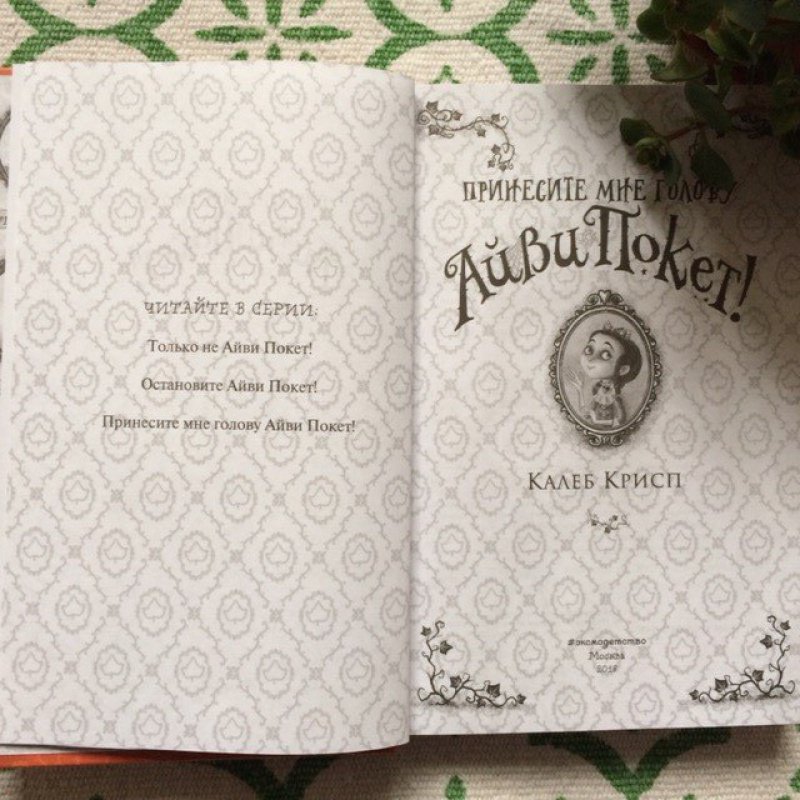 ЧИТАЙТЕ В СЕРИИ:
Только не Айви Покет!
Остановите Айви Покет!
Принесите мне голову Айви Покет!
ПРИНЕСИТЕ МНЕ ГОЛОВУ
АЙВИ ПОКЕТ!
КАЛЕБ КРИСП
#эксмодетство
Москва